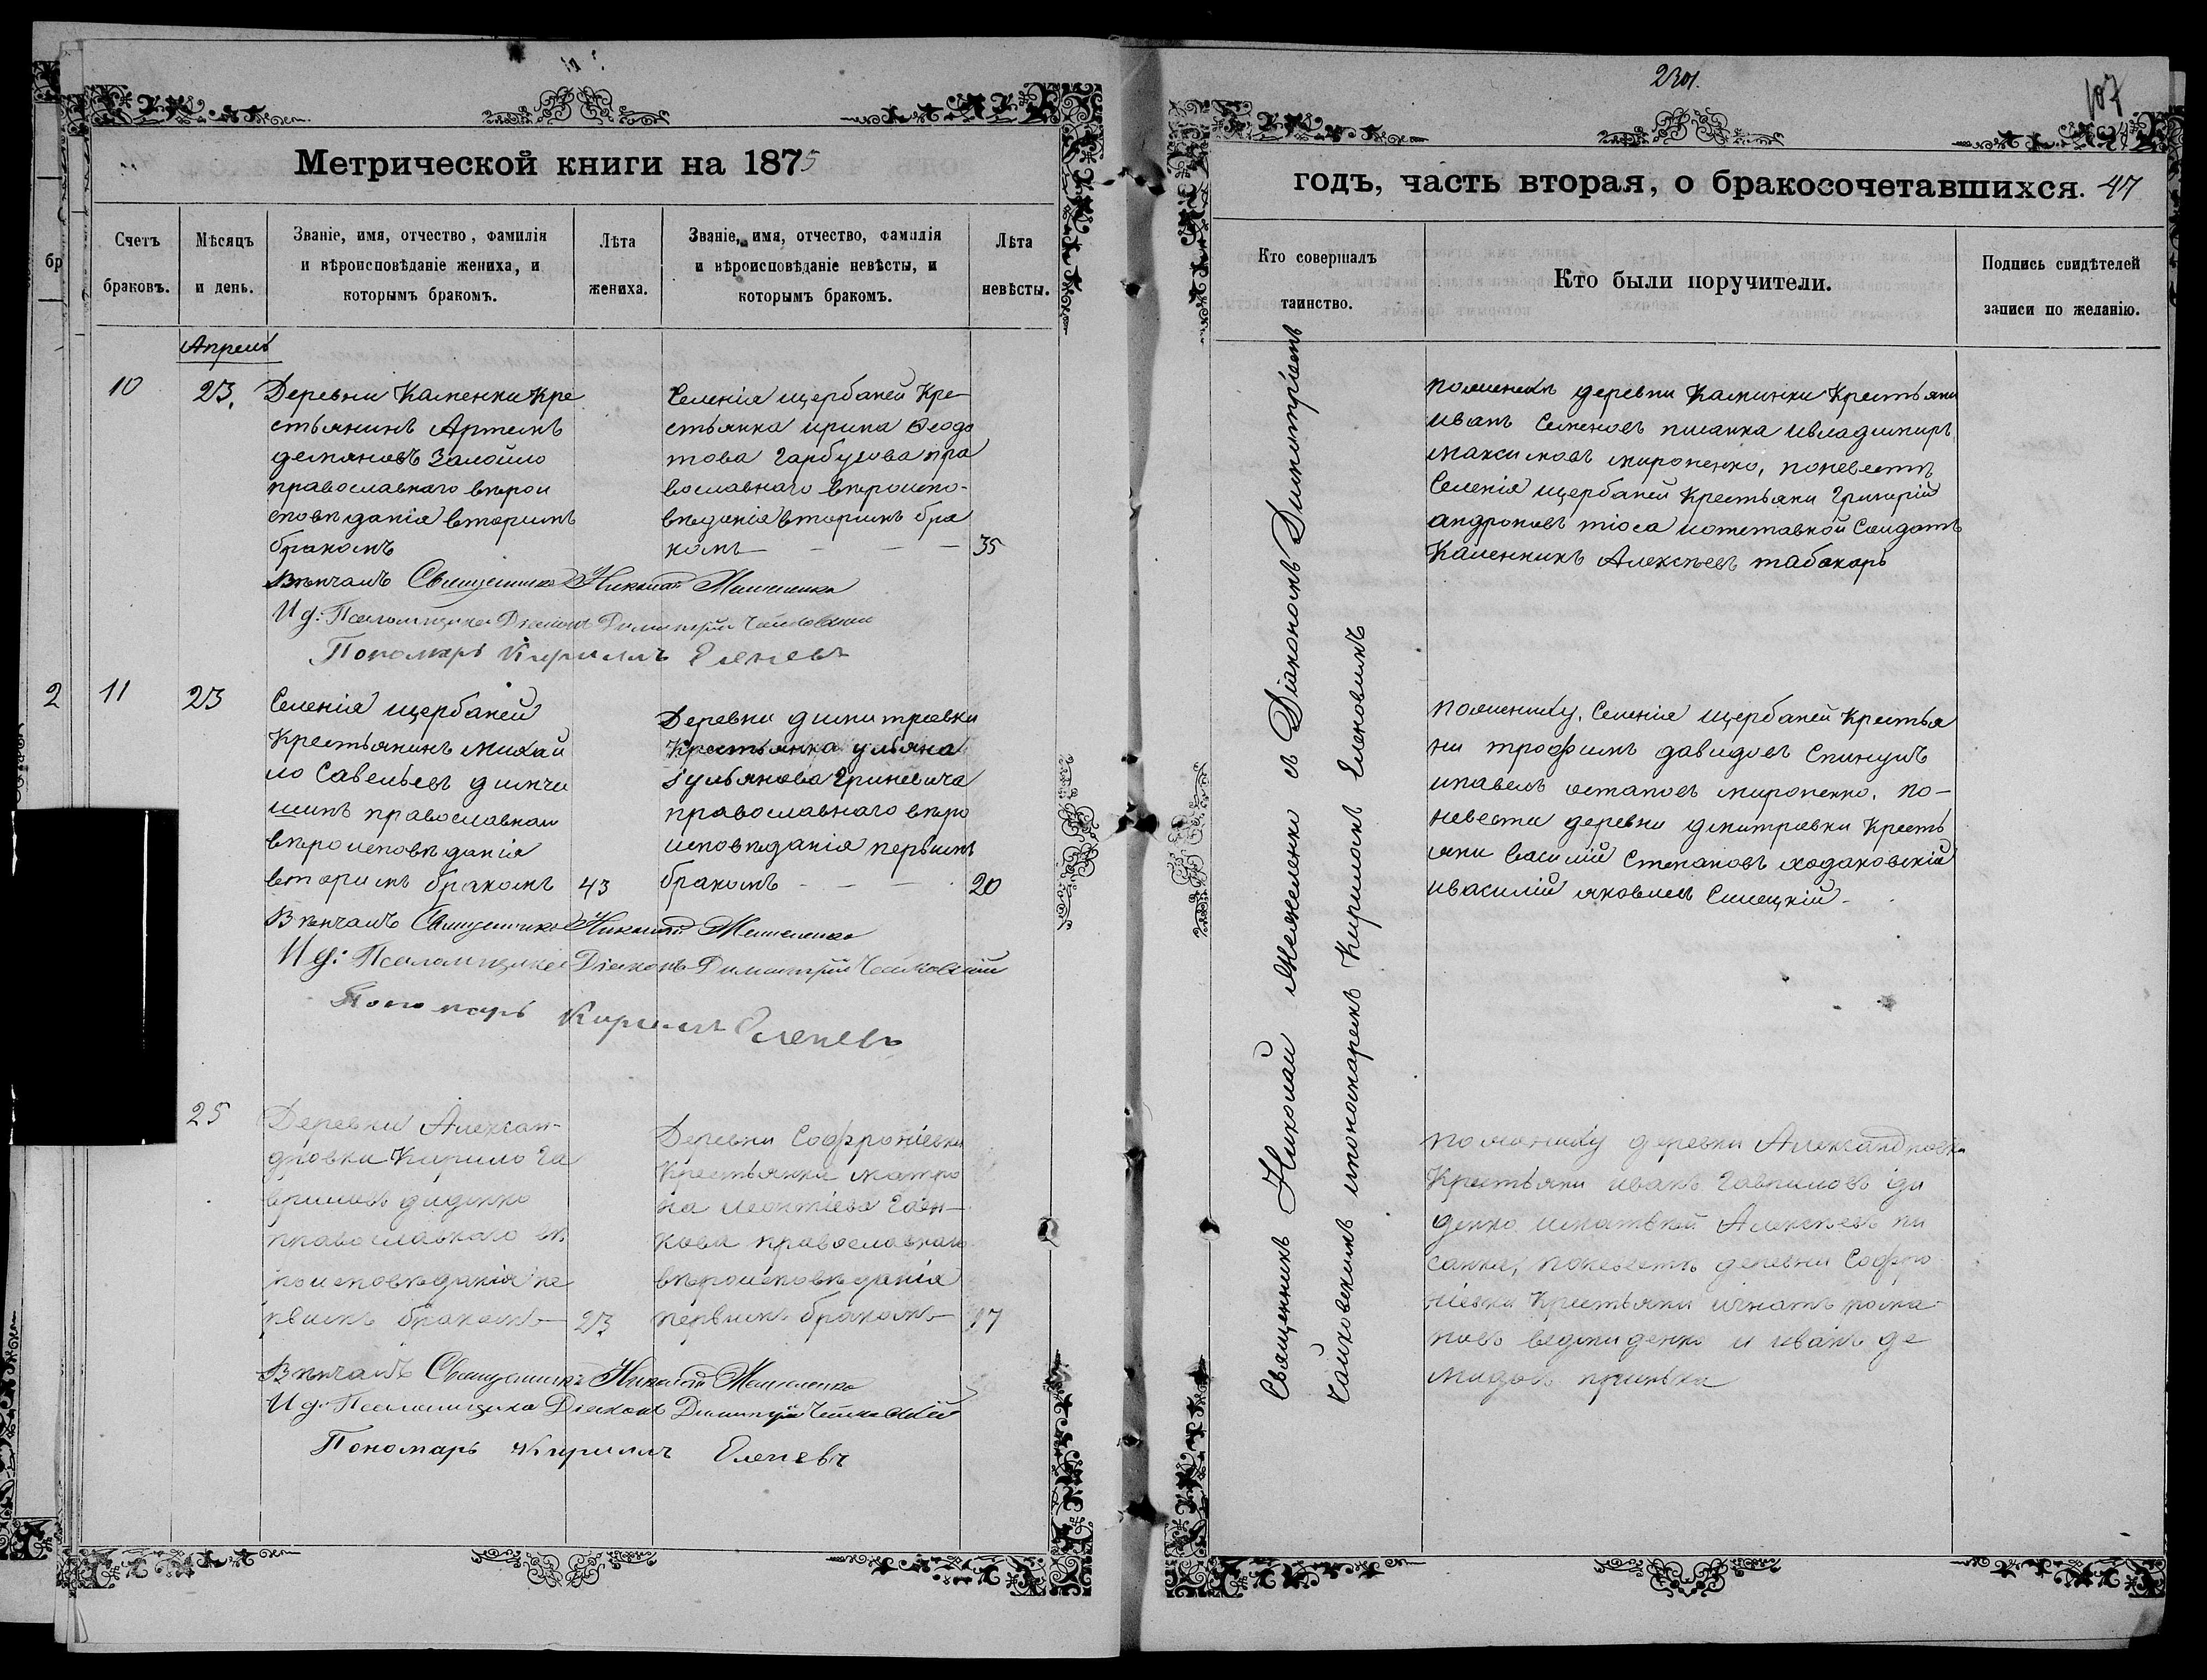 Метрической книги на 1875
Счетъ браковъ.
Мѣсяцъ и день.
Званіе, имя, отчество, фамилія и вѣроисповѣданіе жениха, и которымъ бракомъ.
Лѣта жениха.
Званіе, имя, отчество, фамилія и вѣроисповѣданіе невѣсты, и которымъ бракомъ.
Лѣта невѣсты.
Апрель
10
23.
Деревни Каменки Кре
стьянинъ Артемъ
демяновъ Залойло
православнаго вѣрои
сповѣданія вторимъ
бракомъ
Селенія щербаней Кре-
стьянка ирина Феодо
това Гарбузова пра
вославнаго вѣроиспо-
вѣданія вторимъ бра
комъ
35
Вѣнчалъ Священникъ Николай
И д: Псаломщика Діаконъ Димитрій Чайковскій
Пономарь Кириллъ Еленевъ
11
23
Селенія щербаней
Крестьянинъ михаи
ло Савельевъ димчи
шинъ православнаго
вѣроисповѣданія
вторимъ бракомъ
43
Деревни димитровки
Крестьянка ульяна
ульянова Гриневича
православнаго вѣро
исповѣданія первымъ
бракомъ
20
Вѣнчалъ Священникъ Николай
И д: Псаломщика Діаконъ Димитрій Чайковскій
Пономарь Кириллъ Еленевъ
25
Деревни Алексан-
дровки Кирило Га
вриловъ диденко
православнаго вѣ
роисповѣданія пе
рвимъ бракомъ
23
Деревни Софроніевки
Крестьянка матро
на леонтіева
кова православнаго
вѣроисповѣданія
первимъ бракомъ
17
Вѣнчалъ Священникъ Николай
И д: Псаломщика Діаконъ Димитрій Чайковскій
Пономарь Кириллъ Еленевъ
2301.
107
годъ, часть вторая, о бракосочетавшихся. 47
Кто совершалъ таинство.
Кто были поручители.
Подпись свидѣтелей записи по желанію.
Священникъ Николай съ Діакономъ Димитріемъ
Чайковскимъ ипономаремъ Кириломъ Еленовимъ
деревни Каминки Крестьяни
иванъ Семеновъ писанка ивладимиръ
максимовъ мироненко, поневестѣ
Селенія щербаней Крестьяни Григорій
андроновъ тіоса иотставной Солдатъ
Алексѣевъ табакарь
пожениху. Селенія щербаней Крестья
ни трофимъ давидовъ
ипавелъ остаповъ мироненко. По-
невести деревни димитровки Кресть
яни василій Степановъ ходаковскій
ивасилій яковлевъ
пожениху деревни Александровки
Крестьяни иванъ Гавриловъ ди
денко иматвѣй Алексѣевъ пи
санка, поневестѣ деревни Софро
ніевки Крестьяни игнатъ рома
новъ и иванъ де
мидовъ